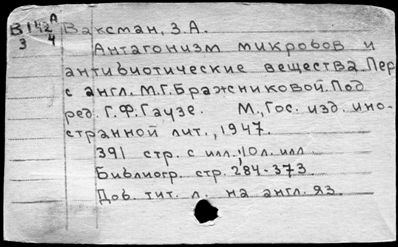 В 142 А Ваксман, З.А.
3 4
Антагонизм микробов и
антибиотические вещества. Пер.
с англ. М.Г. Бражниковой. Под
ред. Г.Ф. Гаузе. М., Гос. изд. ино-
странной лит., 1947.
391 стр. с илл., 10 л. илл.
Библиогр. стр. 284-373.
Доб. тит. л. на англ. яз.